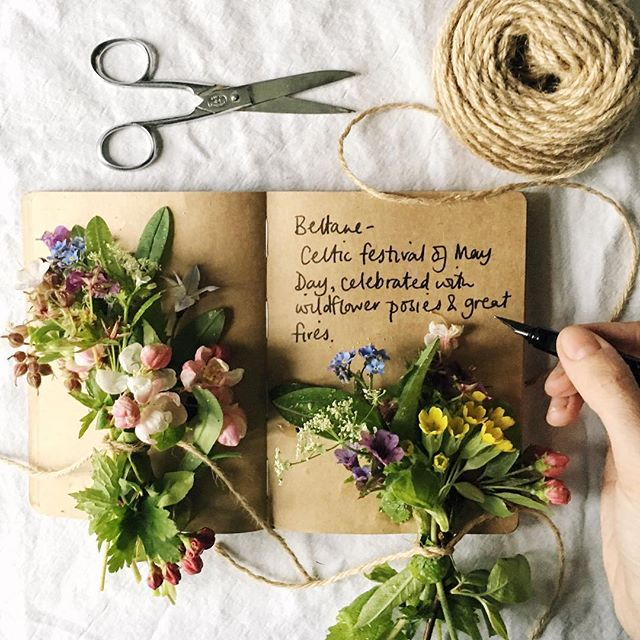 Beltane -
Celtic festival of May
Day, celebrated with
wildflower posies & great
fires.